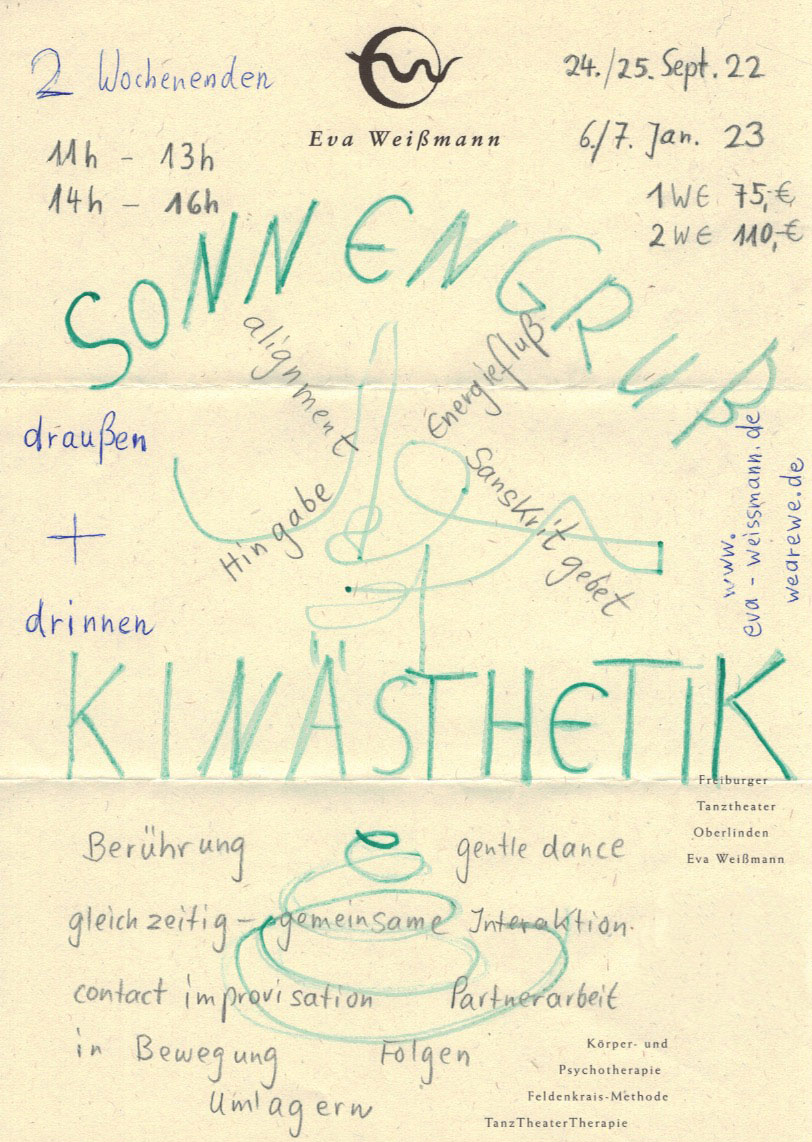 2 Wochenenden
11h - 13h
14h - 16h
Eva Weißmann
24./25. Sept. 22
6./7. Jan. 23
1 WE 75,-€
2 WE 110,-€
SONNENGRUß
alignment
Energiefluß
Hingabe
Sanskritgebet
draußen
+
drinnen
www.
eva-weissmann.de
wearewe.de
KINÄSTHETIK
Freiburger
Tanztheater
Oberlinden
Eva Weißmann
Berührung gentle dance
gleichzeitig-gemeinsame Interaktion.
contact improvisation Partnerarbeit
in Bewegung Folgen
Umlagern
Körper- und
Psychotherapie
Feldenkrais-Methode
TanzTheaterTherapie